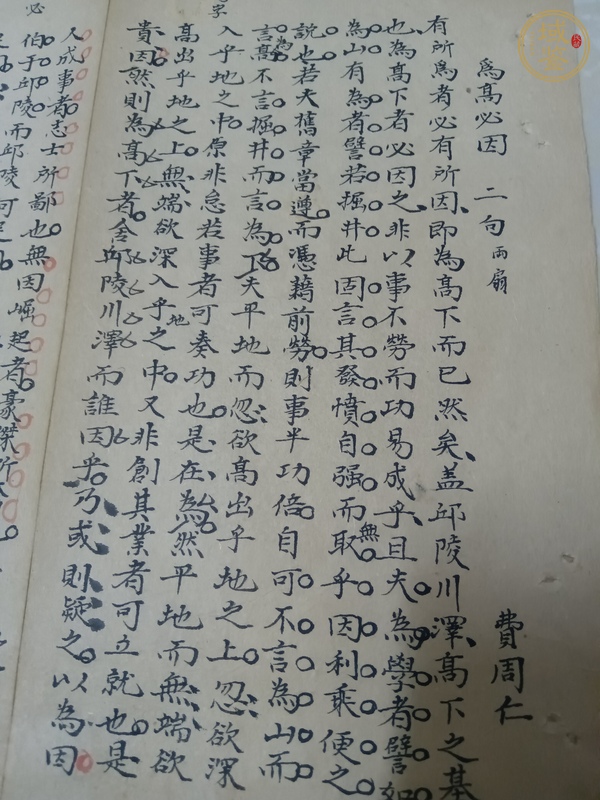 為高必因 二句 兩扇
費周仁
有所為者必有所因、即為高下而已然矣、盖邱陵川澤、高下之基
也、為高下者必因之、非以事不勞而功易成乎、且夫為學者譬如
為山有為者譬若掘井此固言其發憤自强而無取乎因利乘便之
說也若夫舊章當遵而憑藉前勞則事半功倍自可不言為山而
言為高不言掘井而言為下夫平地而忽欲高出乎地之上忽欲深
入乎地之中原非怠若事者可奏功也是在為然平地而無端欲
高出乎地之上無端欲深入乎地之中又非創其業者可立就也是
貴因然則為高下者舍邱陵川澤而誰因乎乃或則疑之以為因
人成事者志士所鄙也無因崛起者豪傑所
伯于邱陵而邱陵可
必
字